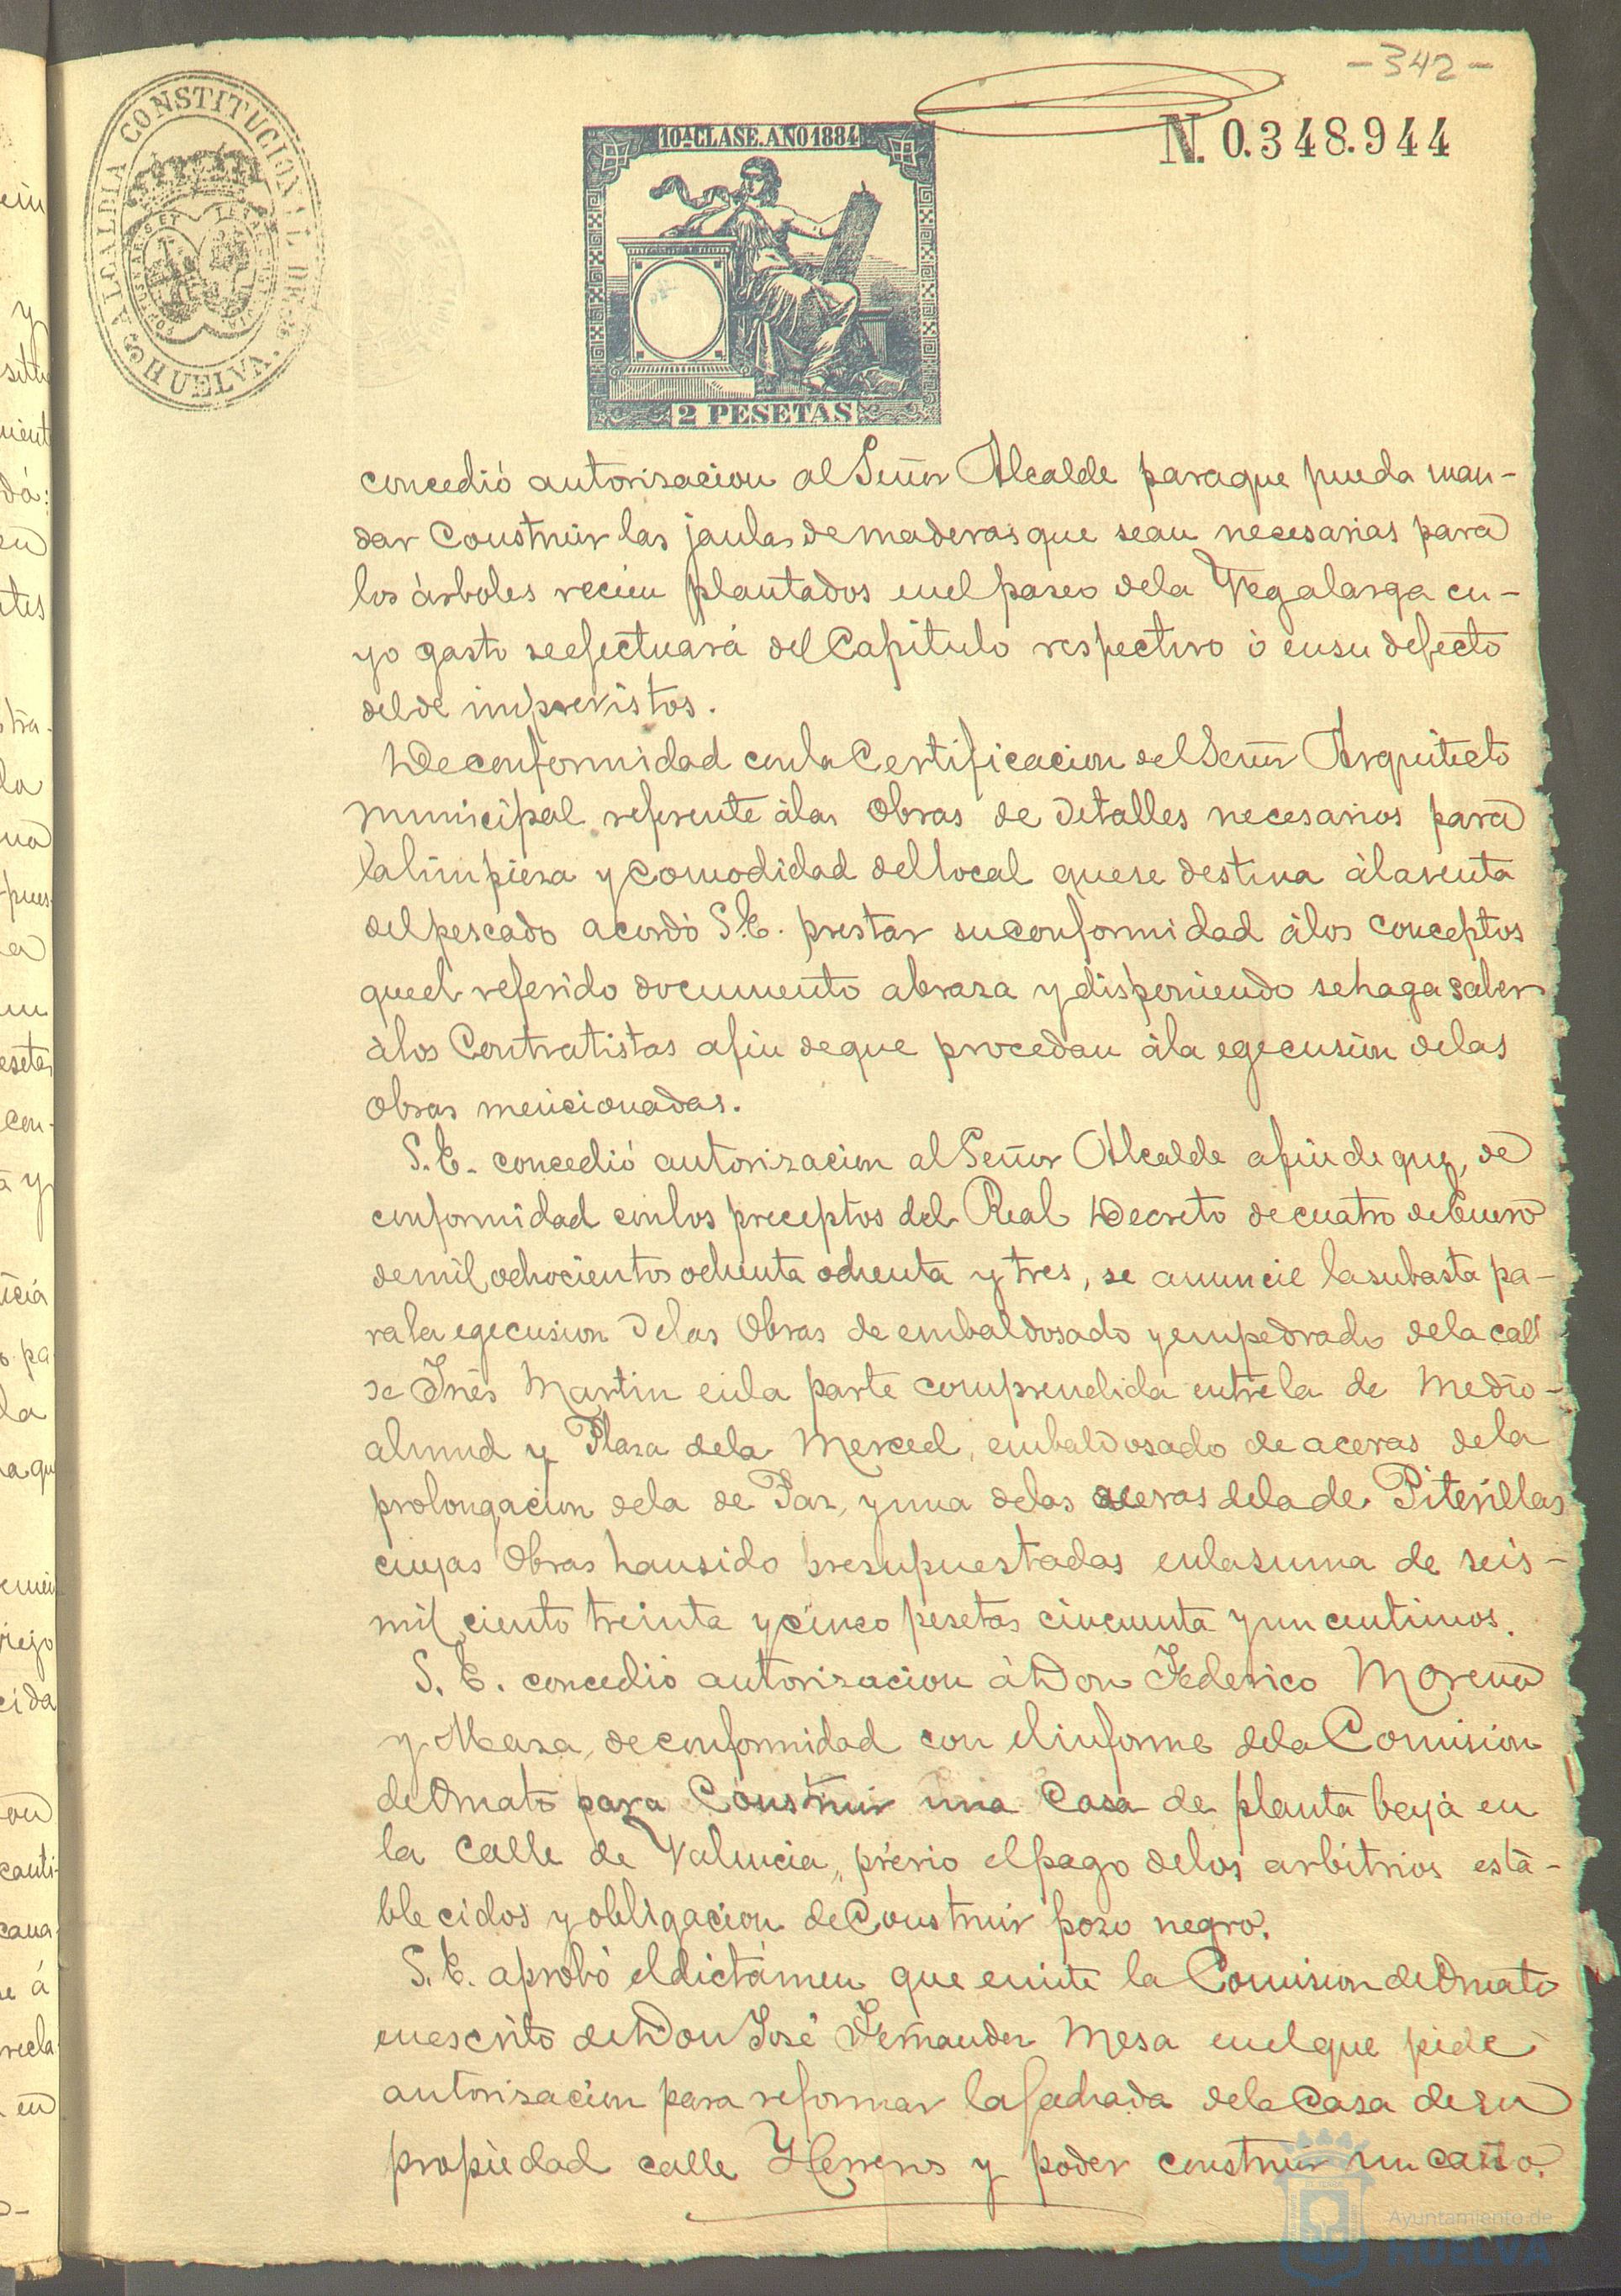 -342-
ALCALDIA CONSTITUCIONAL DE
HUELVA.
10ª CLASE. AÑO 1884
N. 0.348.944
2 PESETAS
concedió autorisacion al Señor Alcalde para que pueda man-
dar Construir las jaulas de maderas que sean necesarias para
los árboles recien plantados en el paseo de la Vegalarga cu-
yo gasto se efectuará del Capitulo respectivo ó en su defecto
del de imprevistos.
De conformidad con la Certificacion del Señor Arquitecto
Municipal referente á las Obras de detalles necesarios para
la limpieza y comodidad del local que se destina á la venta
del pescado acordó S.E. prestar su conformidad á los conceptos
que el referido documento abraza y disponiendo se haga saber
á los Contratistas a fin de que procedan á la egecusion de las
Obras mencionadas.
S.E. concedió autorizacion al Señor Alcalde a fin de que, de
conformidad con los preceptos del Real Decreto de cuatro de Enero
de mil ochocientos ochenta ochenta y tres, se anuncie la subasta pa-
ra la egecusion de las Obras de embaldosado y empedrado de la call
de Inés Martin en la parte comprendida entre la de Medio-
almud y Plaza de la Merced, embaldosado de aceras de la
prolongacion de la de Paz, y una de las aceras de la de Piterillas
cuyas Obras han sido presupuestadas en la suma de seis-
mil ciento treinta y cinco pesetas cincuenta y un centimos.
S. E. concedió autorisacion á Don Federico Moreno
y Maza, de conformidad con el informe de la Comision
de Ornato para Construir una Casa de planta baja en
la Calle de Valencia, prévio el pago de los arbitrios está-
blecidos y obligacion de Construir pozo negro.
S.E. aprobó el dictámen que emite la Comision de Ornato
en escrito de Don José Fernandez Mesa en el que pide
autorizacion para reformar la fachada de la Casa de su
propiedad calle Herreros y poder construir un caño.
Ayuntamiento de
HUELVA